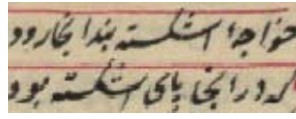 خواجهٔ اشکسته بند آنجا رود
که در آنجا پای اشکسته بود